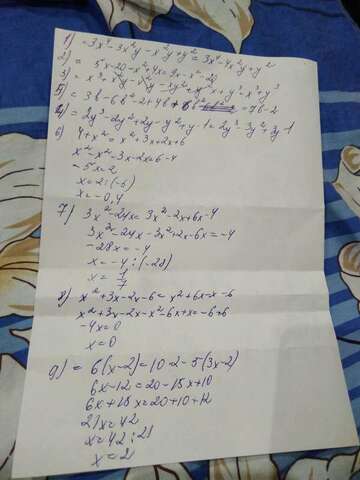 1) = 3x⁴-3x²y-x²y+y² = 3x⁴-4x²y+y²
2) = 5x-20-x²+4x = 9x-x²-20
3) = x³-x²y-x²y-
5) = 3b-6b²-2+4b+6b² = 7b-2
4) = 2y³-2y²+2y-y²+y-1 = 2y³-3y²+3y-1
6) 4+x² = x²+3x+2x+6
x²-x²-3x-2x=6-4
-5x=2
x=2:(-5)
x=-0,4
7) 3x²-24x=3x²-2x+6x-4
3x²-24x-3x²+2x-6x=-4
-28x=-4
x=-4:(-28)
x=1/7
8) x²+3x-2x-6=x²+6x-x-6
x²+3x-2x-x²-6x+x=-6+6
-4x=0
x=0
9) = 6(x-2)=10·2-5(3x-2)
6x-12=20-15x+10
6x+15x=20+10+12
21x=42
x=42:21
x=2